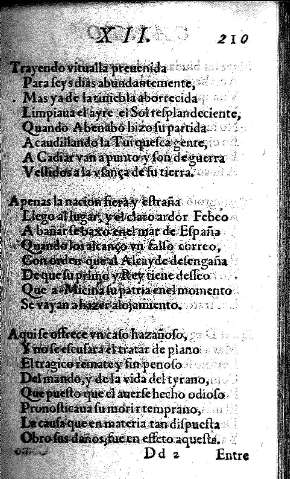 XII. 210
Trayendo vitualla preuenida
Para seys dias abundantemente,
Mas ya de la tiniebla aborrecida
Limpiaua el ayre el Sol resplandeciente,
Quando Abenabò hizo su partida
Acaudillando la Turquesca gente,
A Cadiar van a punto y son de guerra
Vestidos a la vsança de su tierra.
Apenas la nacion fiera y estraña
Llegò al lugar, y el claro ardor Febeo
A bañar se baxò en el mar de España
Quando los alcançò vn falso correo,
Con orden que al Alcayde desengaña
De que su primo y Rey tiene desseo
Que a Micina su patria en el momento
Se vayan a hazer alojamiento.
Aqui se offrece vn caso hazañoso,
Y no se escusarà el tratar de plano
El tragico remate y fin penoso
Del mando, y de la vida del tyrano,
Que puesto que el auerse hecho odioso
Pronosticaua su morir temprano,
La causa que en materia tan dispuesta
Obrò sus daños, fue en effeto aquesta.
Dd 2 Entre